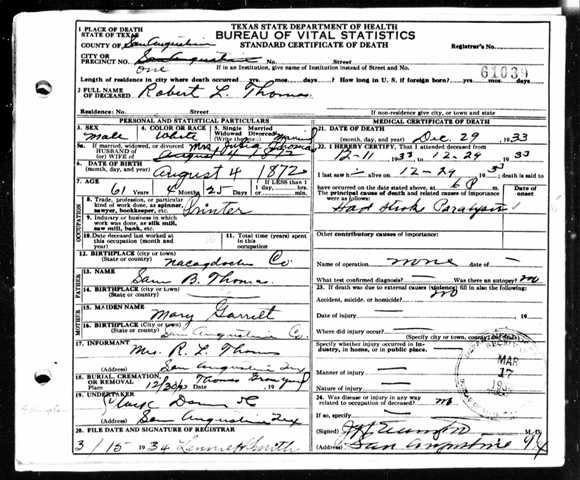 TEXAS STATE DEPARTMENT OF HEALTH
BUREAU OF VITAL STATISTICS
STANDARD CERTIFICATE OF DEATH
1 PLACE OF DEATH
STATE OF TEXAS
COUNTY OF San Augustine
Registrar's No.
CITY OR
PRECINCT NO. San Augustine
One
If in an Institution, give name of Institution instead of Street and No.
61039
Length of residence where death occurred yrs. mos. days? How long in U. S. if foreign born? yrs. mos. days
2 FULL NAME
OF DECEASED Robert L. Thomas
Residence: No. Street
If non-residence give city, or town and State
PERSONAL AND STATISTICAL PARTICULARS
3. SEX
male
4. COLOR OR RACE
White
5. Single Married
Widowed Divorced
(Write the word) Married
5a. If married, widowed, or divorced
HUSBAND OF
(or) WIFE of
Mrs Thomas
August 4 1872
6. DATE OF BIRTH
(month, day, and year)
August 4 1872
7. AGE
61 Years 4 Months 25 Days
If LESS than
1 day, hrs.
or min.
OCCUPATION
8. Trade, profession, or particular
kind of work done, as spinner,
sawyer, bookkeeper, etc.
Printer
9. Industry or business in which
work was done, as silk mill,
saw mill, bank, etc.
10. Date deceased last worked at
this occupation (month and
year)
11. Total time (years)
spent in this
occupation
12. BIRTHPLACE (City or town)
(State or country)
Nacogdoches Co
FATHER
13. NAME
Sam B. Thomas
14. BIRTHPLACE (City or town)
(State or country)
MOTHER
15. MAIDEN NAME
Mary Garrett
16. BIRTHPLACE (City or town)
(State or country)
San Augustine Co.
17. INFORMANT
Mrs. R. L. Thomas
(Address) San Augustine Tex
18. BURIAL, CREMATION,
OR REMOVAL
Place Thomas
12/30/ 19
19. UNDERTAKER
(Address) San Augustine Tex
20. FILE DATE AND SIGNATURE OF REGISTRAR
3/15 1934 Smith
MEDICAL CERTIFICATE OF DEATH
21. DATE OF DEATH
(month, day, and year) Dec. 29, 1933
22. I HEREBY CERTIFY, That I attended deceased from
12-11 1933 to 12-29 1933
I last saw alive on 12-29 1933, death is said to
have occurred on the date stated above, at 6 P. m.
The principal cause of death and related causes of importance
were as follows:
Date of
onset
Had Stroke Paralysis
Other contributory causes of importance:
Name of operation none Date of
What test confirmed diagnosis? Was there an autopsy? no
23. If death was due to external causes (violence) fill in also the following:
Accident, suicide, or homicide? no
Date of injury 19
Where did injury occur?
(Specify city or town, county, and state)
Specify whether injury occurred in industry, in home, or in public place.
Manner of injury
Nature of injury
24. Was disease or injury in any way
related to occupation of deceased? no
If so, specify
(Signed) M. D.
San Augustine
MAR
17